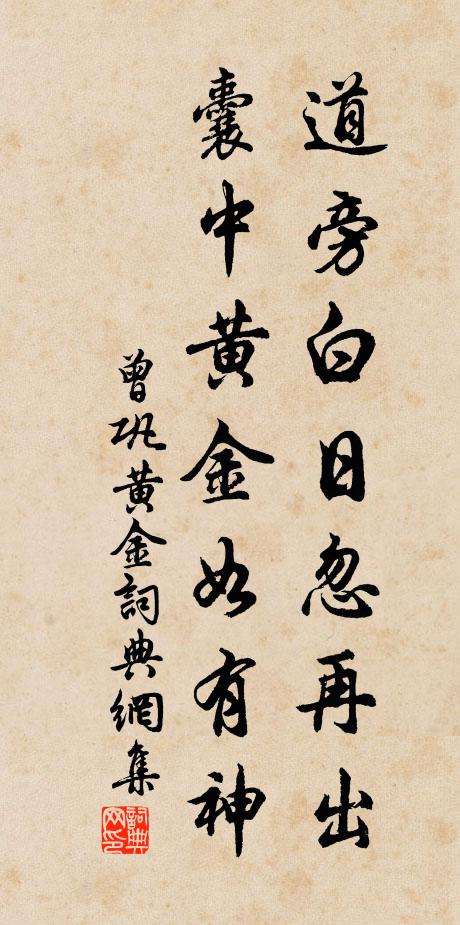 道旁白日忽再出
囊中黃金如有神
曾巩黃金詞典網集
詞典网印